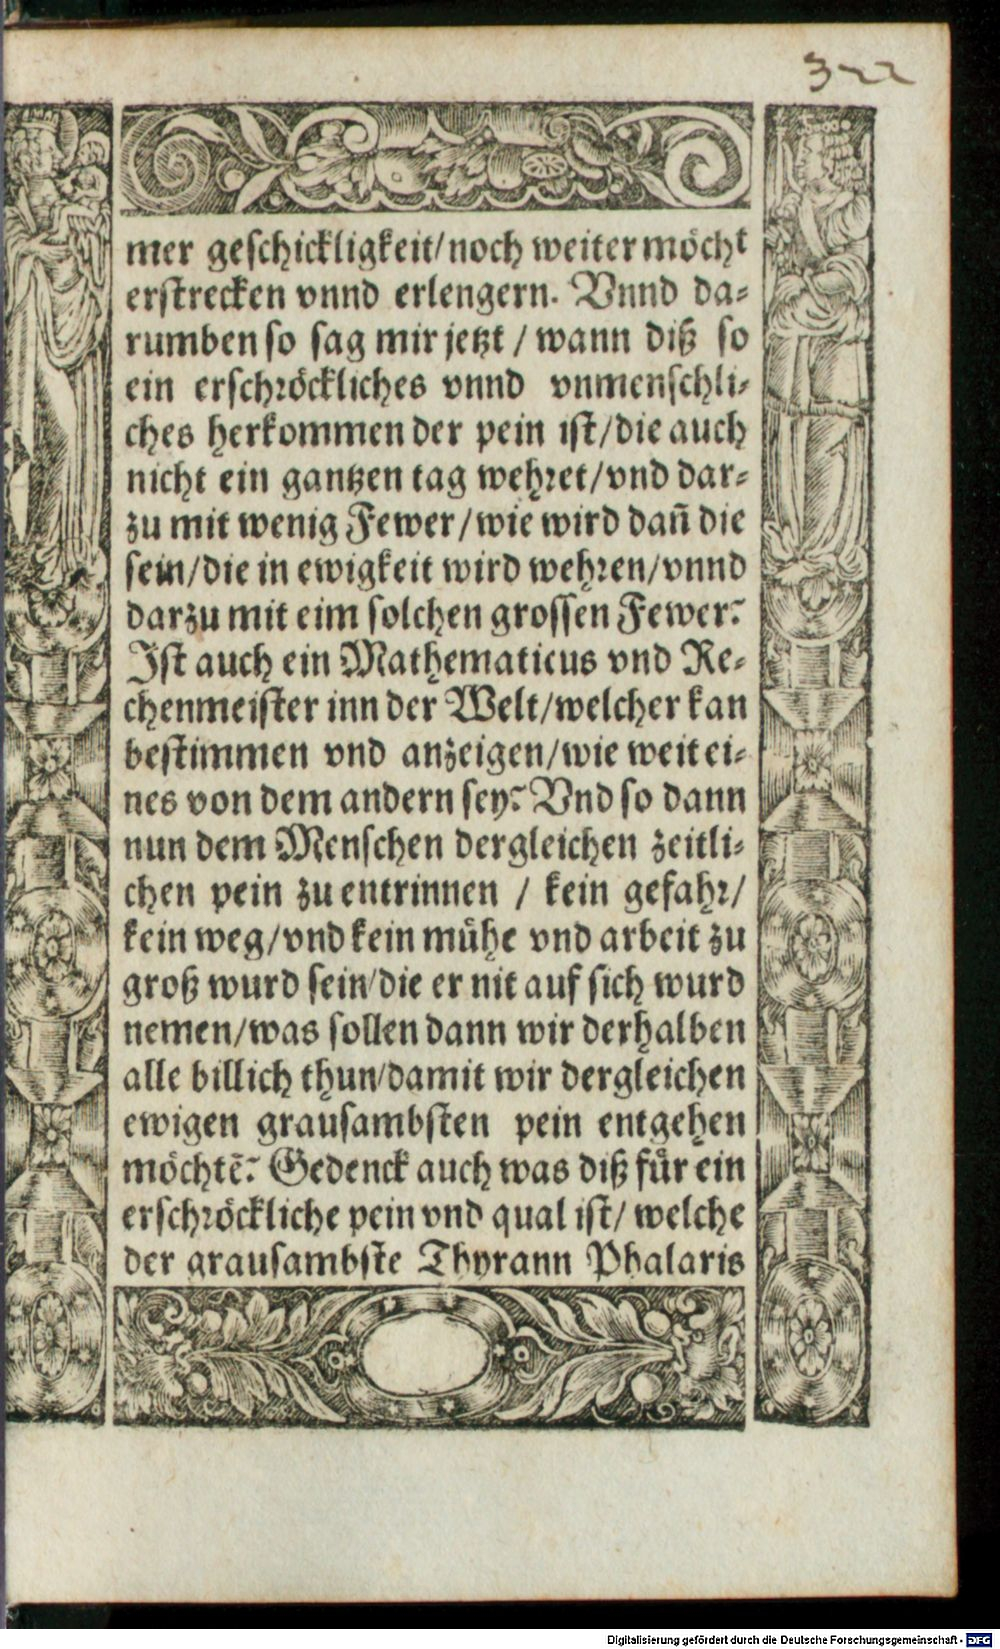 322
mer geschickligkeit/noch weiter möcht
erstrecken vnnd erlengern. Vnnd da⸗
rumben so sag mir jetzt / wann diß so
ein erschröckliches vnnd vnmenschli⸗
ches herkommen der pein ist/die auch
nicht ein gantzen tag wehret/vnd dar⸗
zu mit wenig Fewer/wie wird dañ die
sein/die in ewigkeit wird wehren/vnnd
darzu mit eim solchen grossen Fewer?
Ist auch ein Mathematicus vnd Re⸗
chenmeister inn der Welt/welcher kan
bestimmen vnd anzeigen/wie weit ei⸗
nes von dem andern sey? Vnd so dann
nun dem Menschen dergleichen zeitli⸗
chen pein zu entrinnen / kein gefahr/
kein weg/vnd kein mühe vnd arbeit zu
groß wurd sein/die er nit auf sich wurd
nemen/was sollen dann wir derhalben
alle billich thun/damit wir dergleichen
ewigen grausambsten pein entgehen
möchtē? Gedenck auch was diß für ein
erschröckliche pein vnd qual ist/ welche
der grausambste Thyrann Phalaris
Digitalisierung gefördert durch die Deutsche Forschungsgemeinschaft - DFG